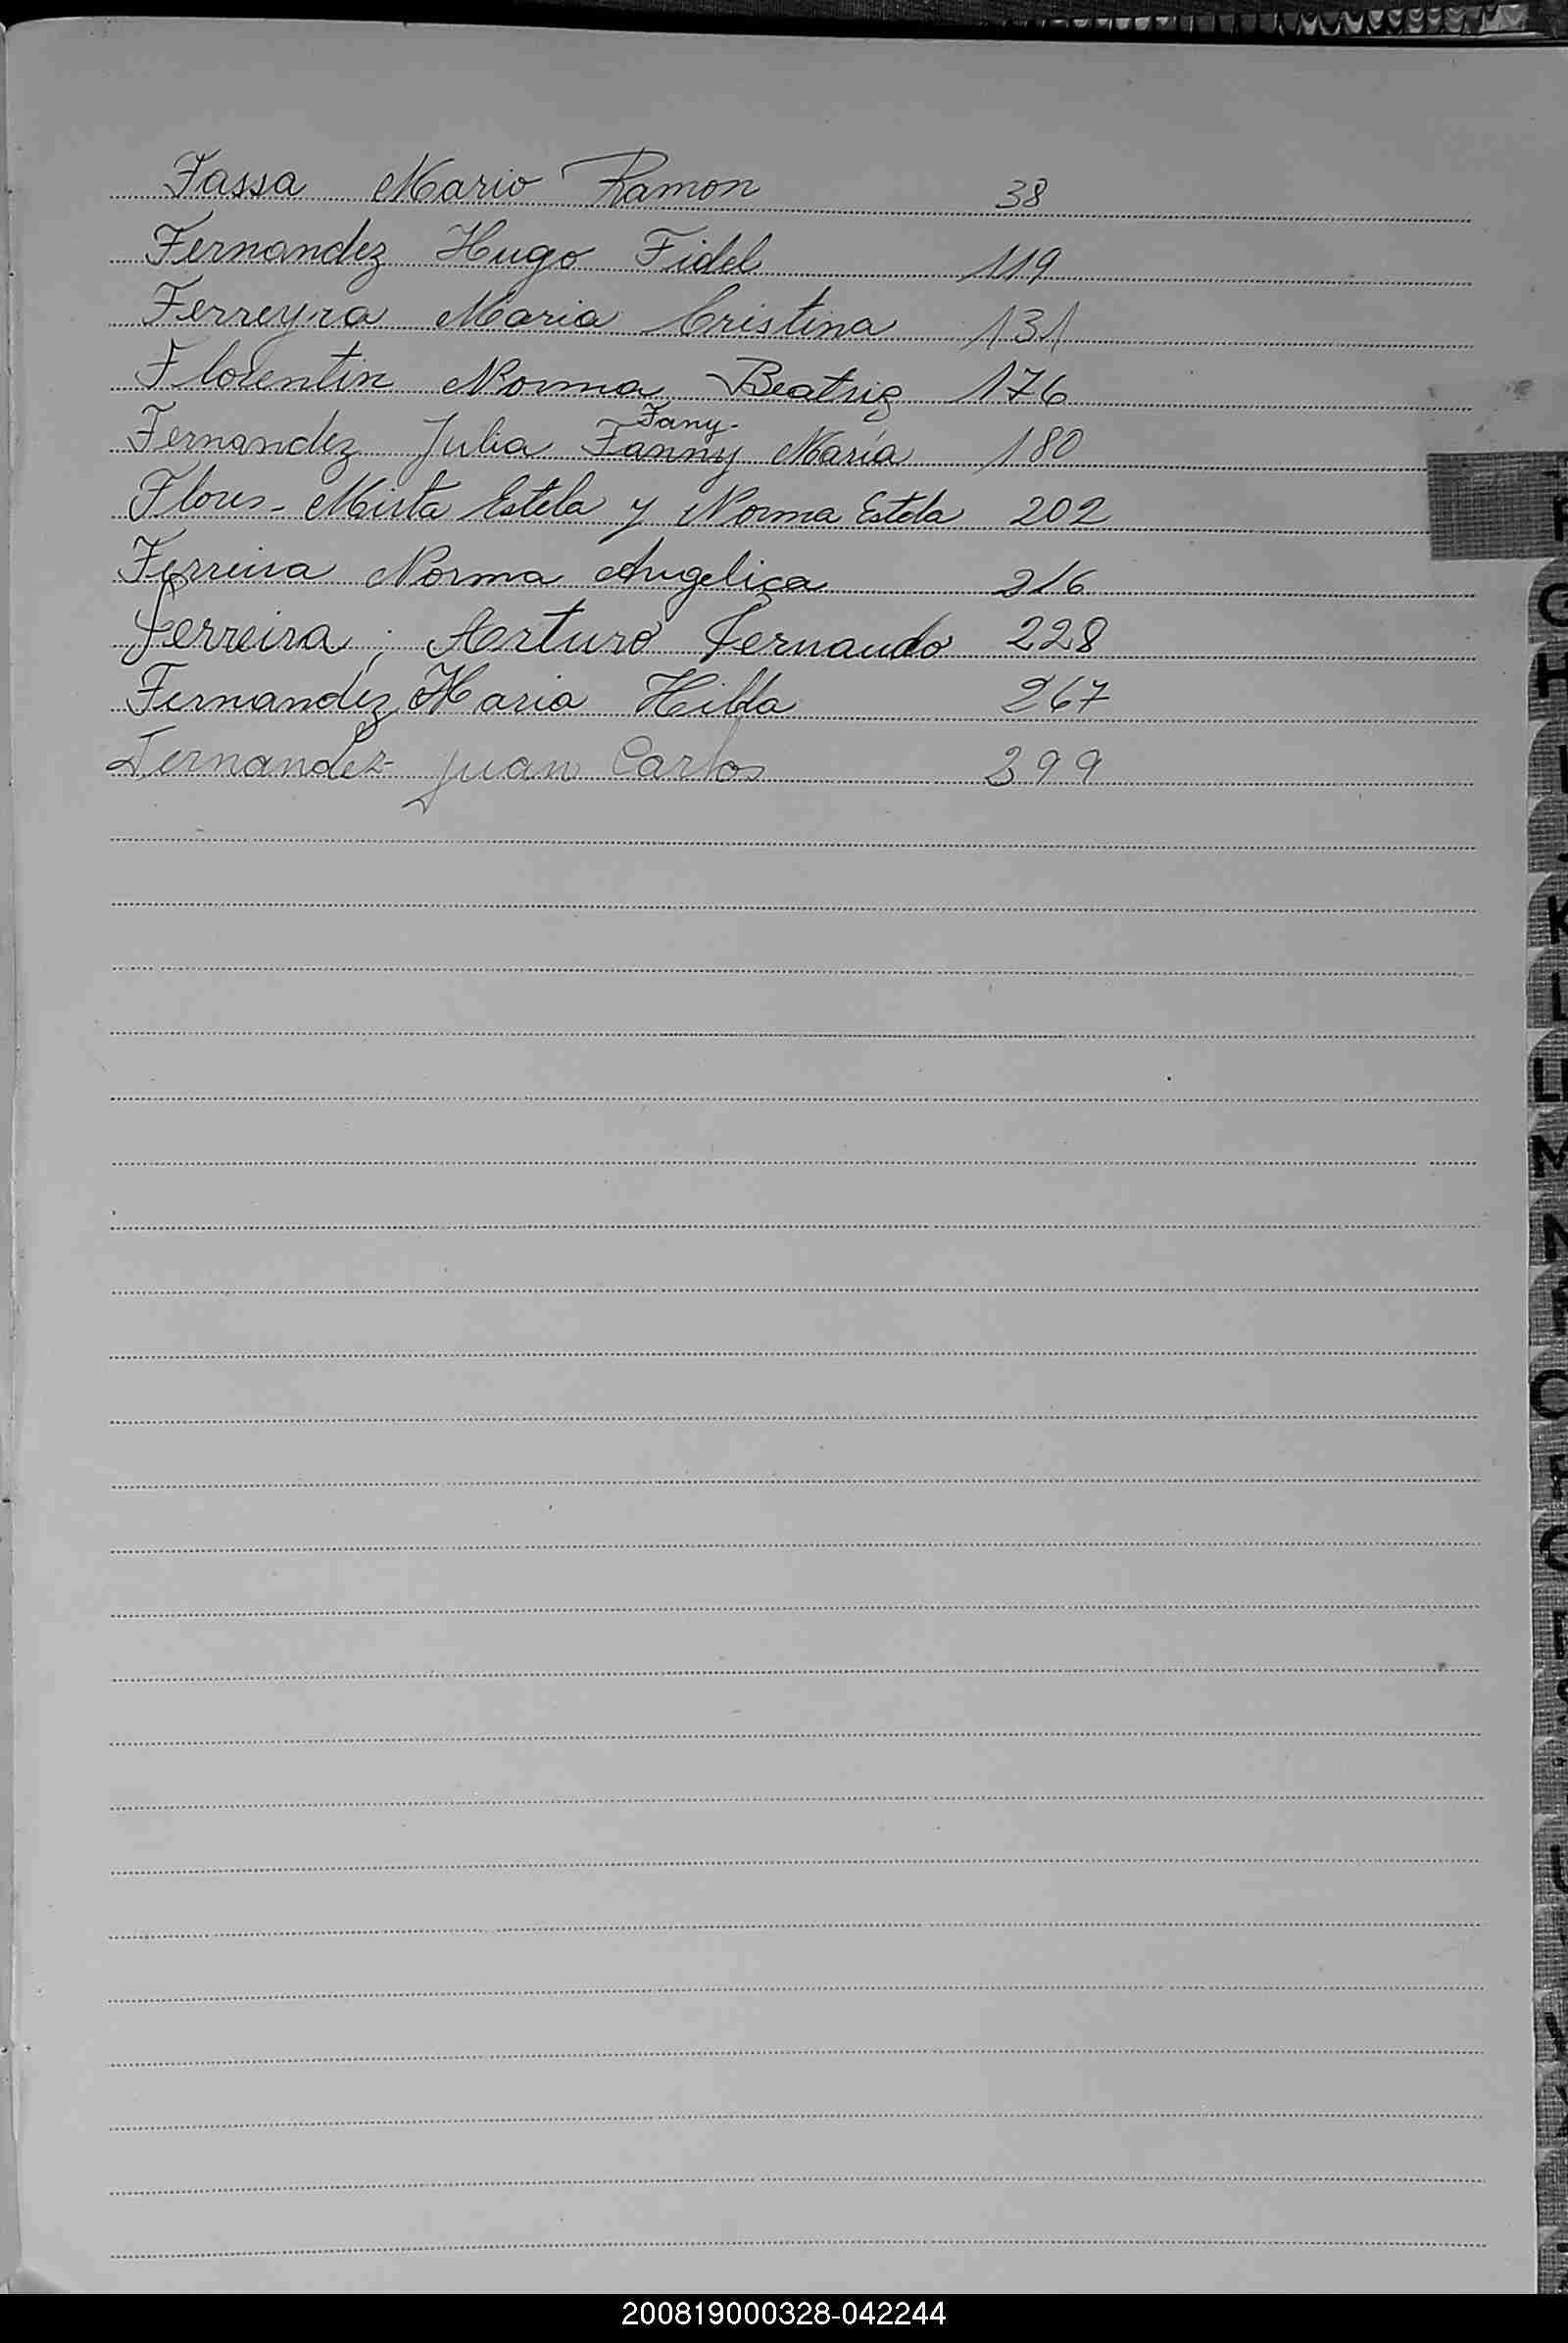 Fassa Mario Ramon 38
Fernandez Hugo Fidel 119
Ferreyra Maria Cristina 131
Florentin Norma Beatriz 176
Fany-
Fernandez Julia Fanny María 180
Flores - Mirta Estela y Norma Estela 202
Ferreira Norma Angelica 216
Ferreira; Arturo Fernando 228
Fernandez Maria Hilda 267
Fernandez Juan Carlos 399
F
G
H
I
K
L
LL
M
N
O
200819000328-042244